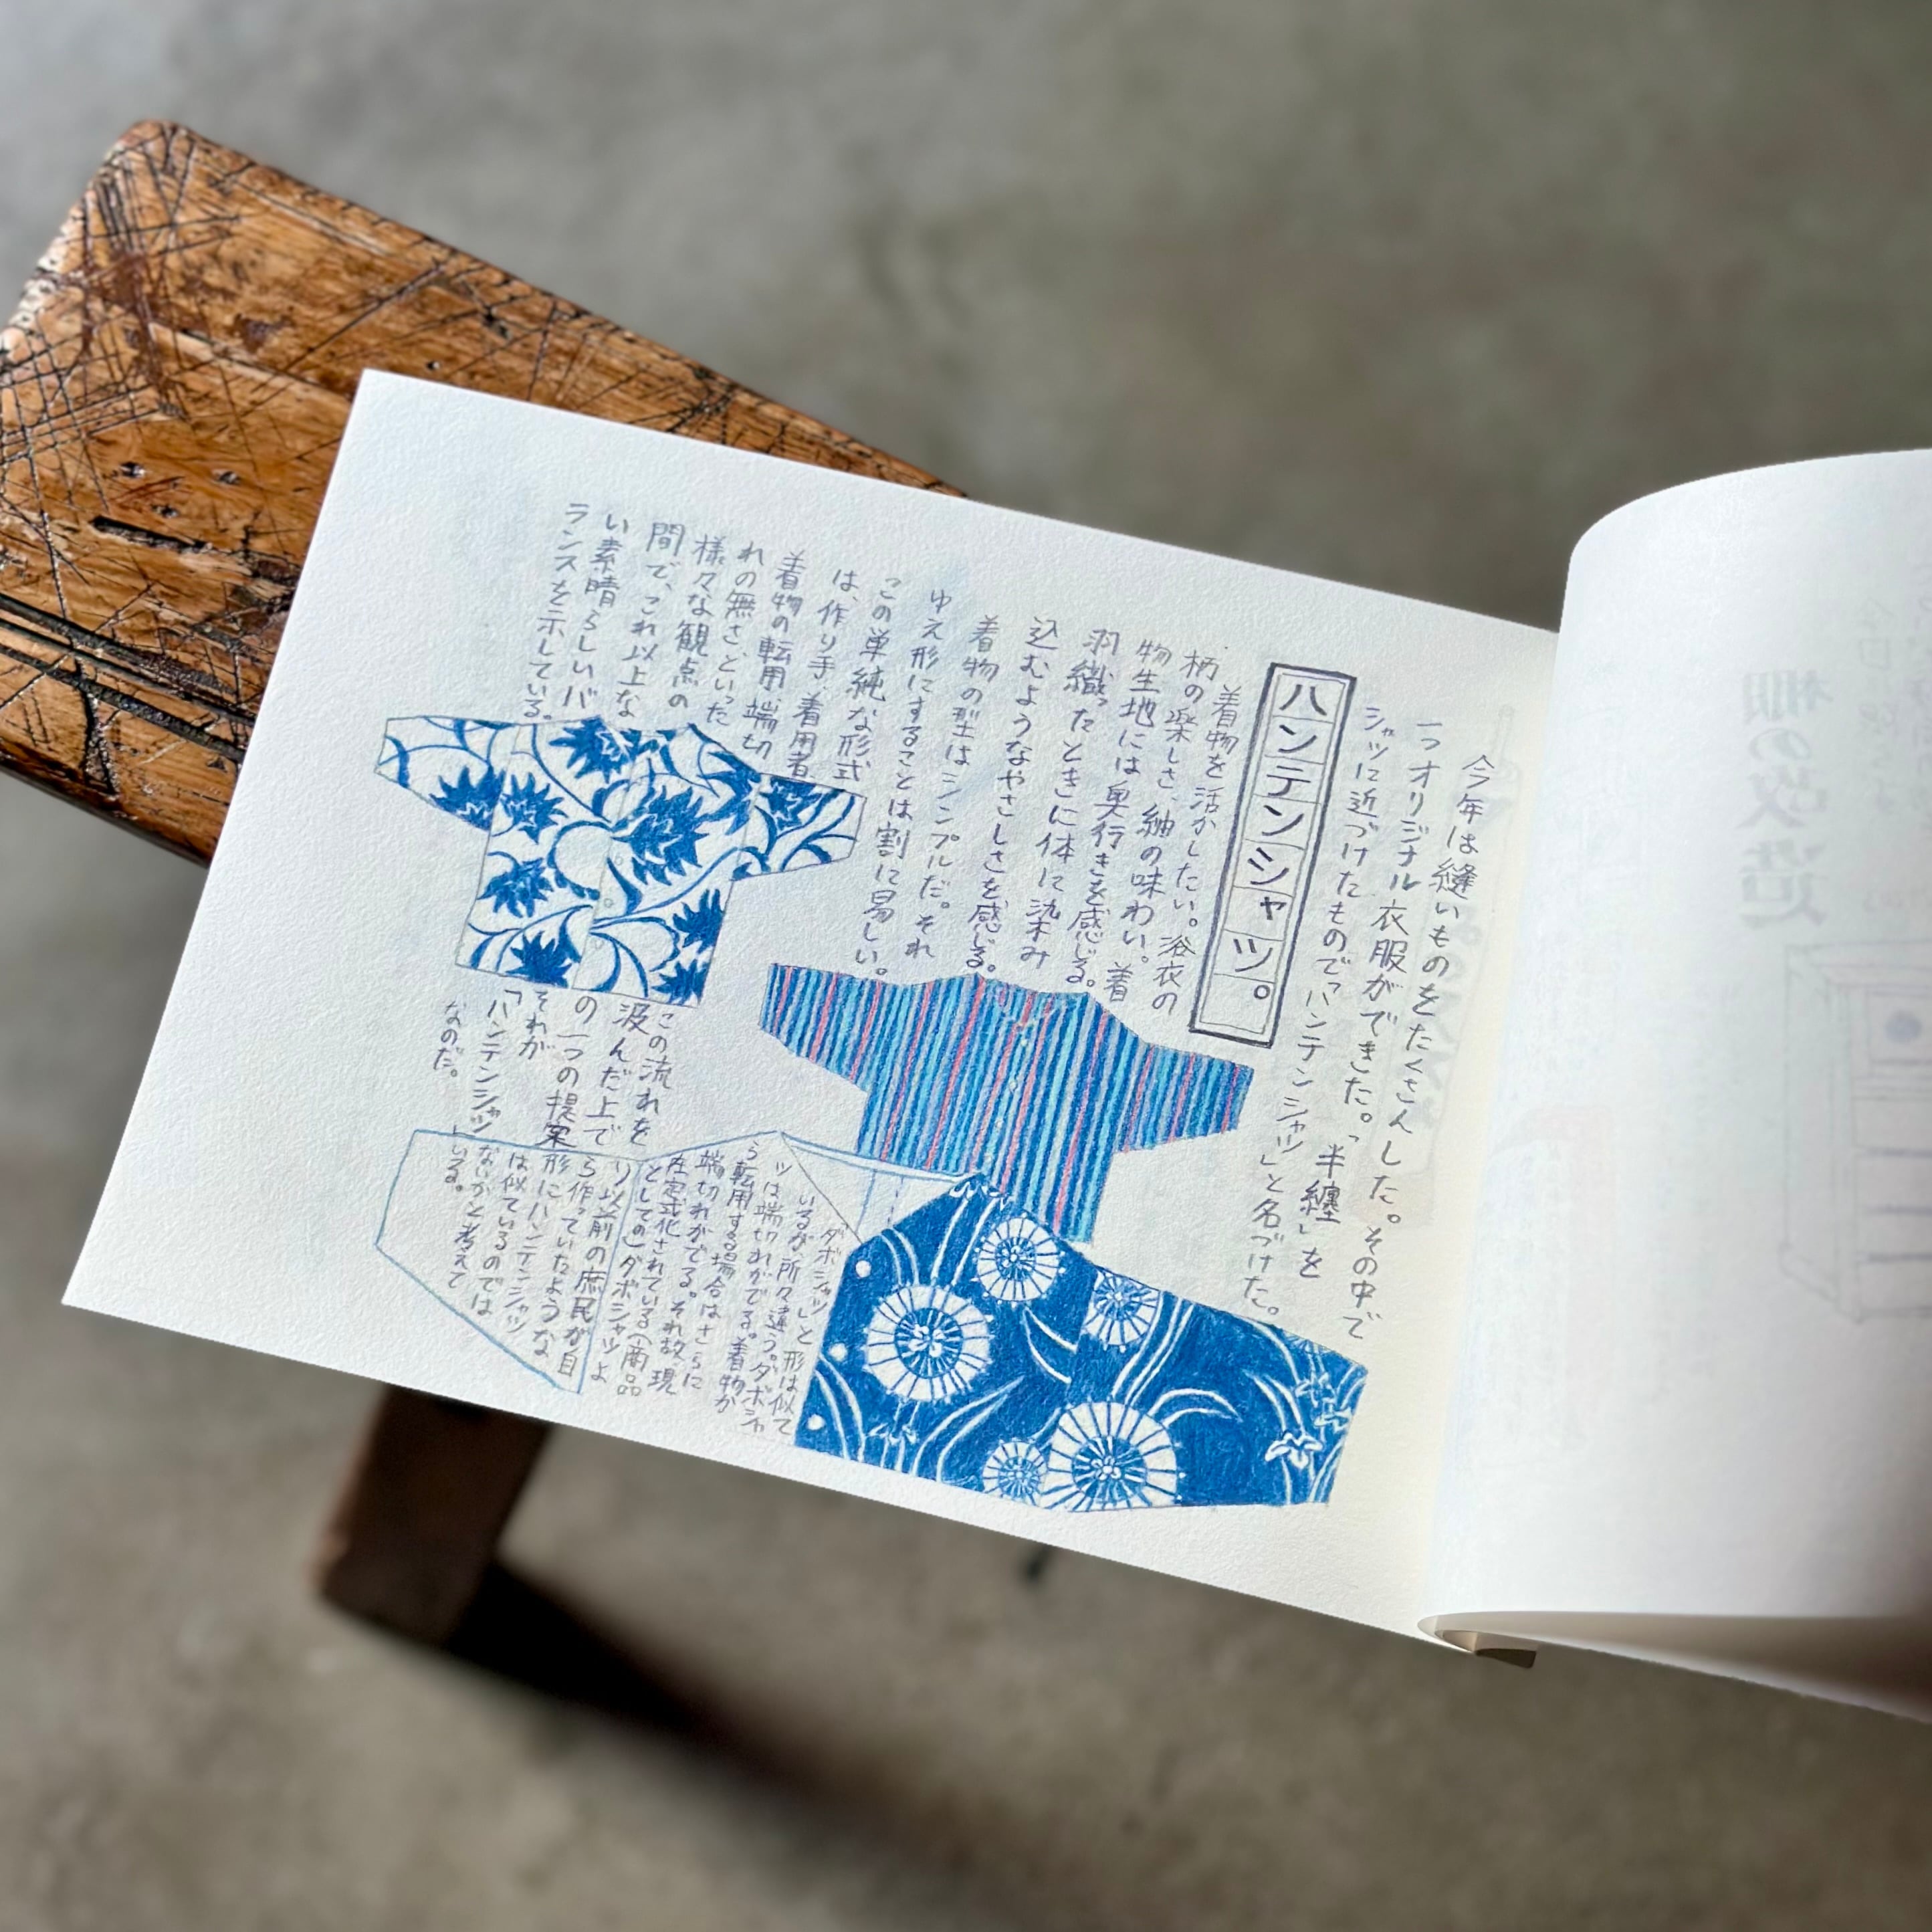 今年は縫いものをたくさんした。その中で
一つオリジナル衣服ができた。「半纏」を
シャツに近づけたもので「ハンテンシャツ」と名づけた。
ハンテンシャツ。
着物を活かしたい。浴衣の
柄の楽しさ、紬の味わい。着
物生地には奥行きを感じる。
羽織ったときに体に染み
込むようなやさしさを感じる。
着物の型はシンプルだ。それ
ゆえ形にすることは割に易しい。
この単純な形式
は、作り手、着用者
着物の転用、端切
れの無さ、といった
様々な観点の
間で、これ以上な
い素晴らしいバ
ランスを示している。
この流れを
汲んだ上で
の一つの提案
それが
「ハンテンシャツ」
なのだ。
「ダボシャツ」と形は似て
いるが、所々違う。ダボシャ
ツは端切れがでる。着物か
ら転用する場合はさらに
端切れがでる。それ故、現
在定式化されている(商品
としての)ダボシャツよ
り以前の庶民が自
ら作っていたような
形にハンテンシャツ
は似ているのでは
ないかと考えて
いる。
棚の改造